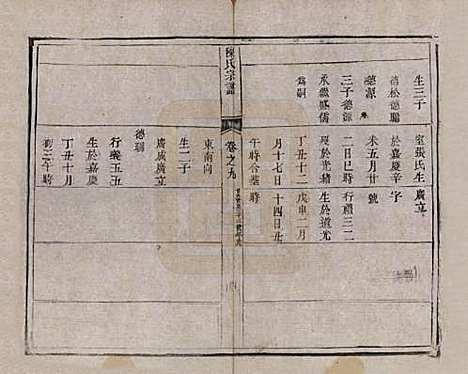 生三子
德松德驈
德源
三子德源
承繼盛儒
為嗣
室張氏生
於嘉慶辛
未五月廿
二日巳時
歿於光緒
丁丑十二
月十七日
午時合葬
廣立
字
號
行禮三二
生於道光
戊申二月
十四日
時
陳氏宗譜
卷之九
東南向
生二子
廣成廣立
德驈
行義五五
生於嘉慶
丁丑十月
初三午時